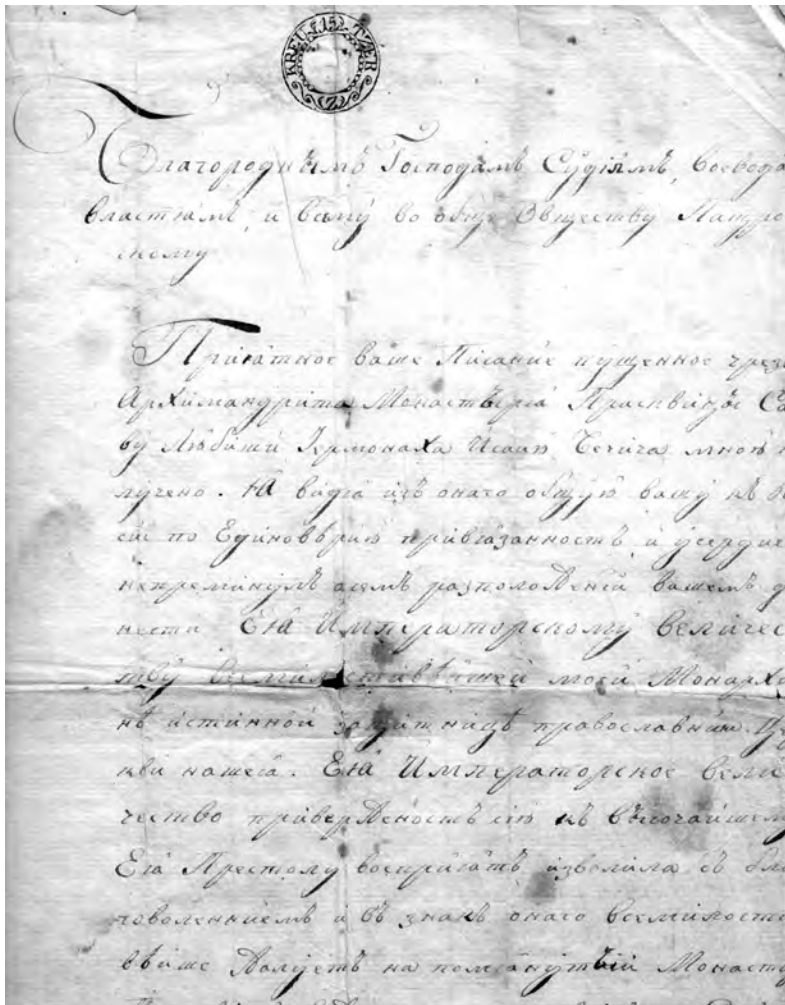 KREUTZER 15
Благороднымъ Господамъ Судіямъ, Воевода
властямъ, и всему во обще Обществу Пастро
скому
Пріятное ваше Писаніе пущенное чрезъ
Архимандрита Монастыря Прасквицъ Са
ву Любиши Іермонаха Исаію мною
лучено. Я видя изъ онаго общую вашу къ
сіи по Единовѣрію привязанность и усердіе
непреминулъ о расположеніи вашемъ
нести Ея Императорскому Величес
тву Всемилостивѣйшей моей Монархи
нѣ истинной защитницѣ православныя Це
ркви нашея. Ея Императорское Вели
чество приверженность сію къ высочайшему
Ея Престолу воспріять изволила съ бла
говоленіемъ и въ знакъ онаго Всемилости
вѣйше жалуетъ на помянутый Монасты